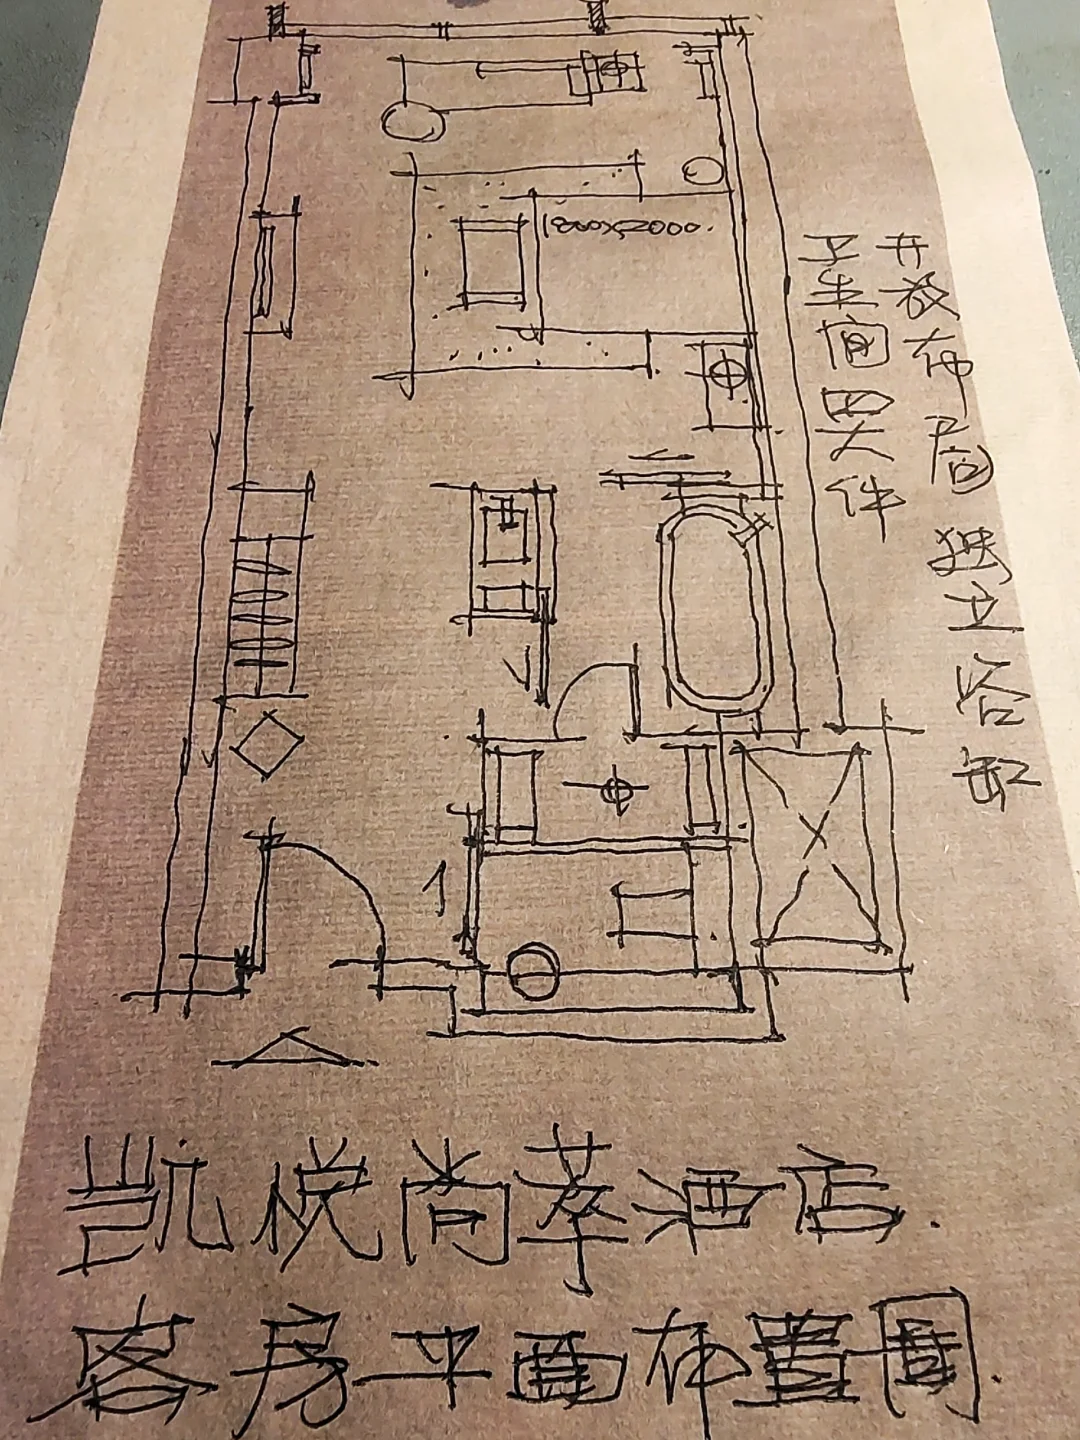 1800x2000.
开放布局 独立浴缸
卫生间四大件
凯悦尚萃酒店.
客房平面布置图.